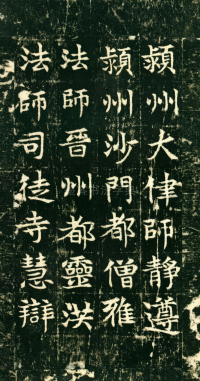 潁州大律師静遵
潁州沙門都僧雅
法師晉州都靈洪
法師司徒寺慧辯